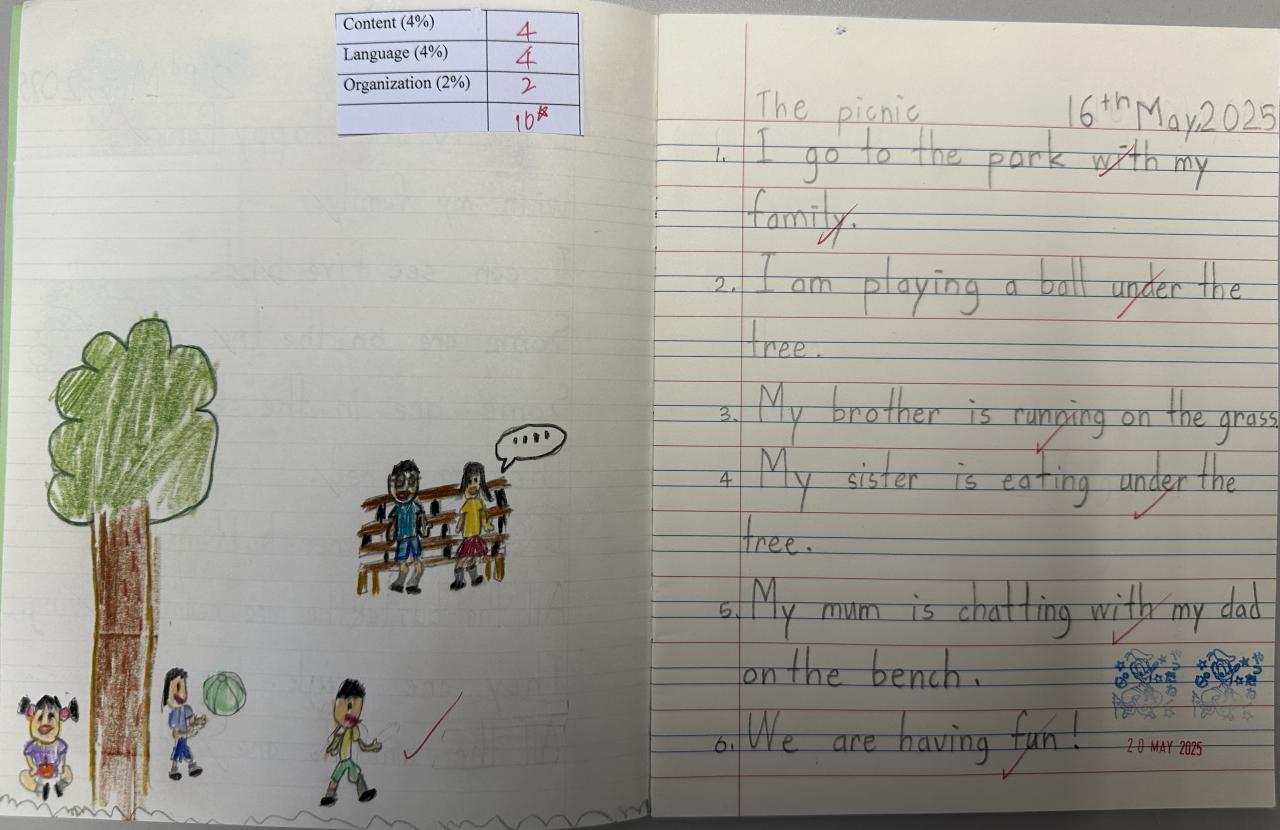 Content (4%) 4
Language (4%) 4
Organization (2%) 2
10*
The picnic 16th May,2025
1. I go to the park with my
family.
2. I am playing a ball under the
tree.
3. My brother is running on the grass.
4 My sister is eating under the
tree.
5. My mum is chatting with my dad
on the bench.
6. We are having fun!
20 MAY 2025